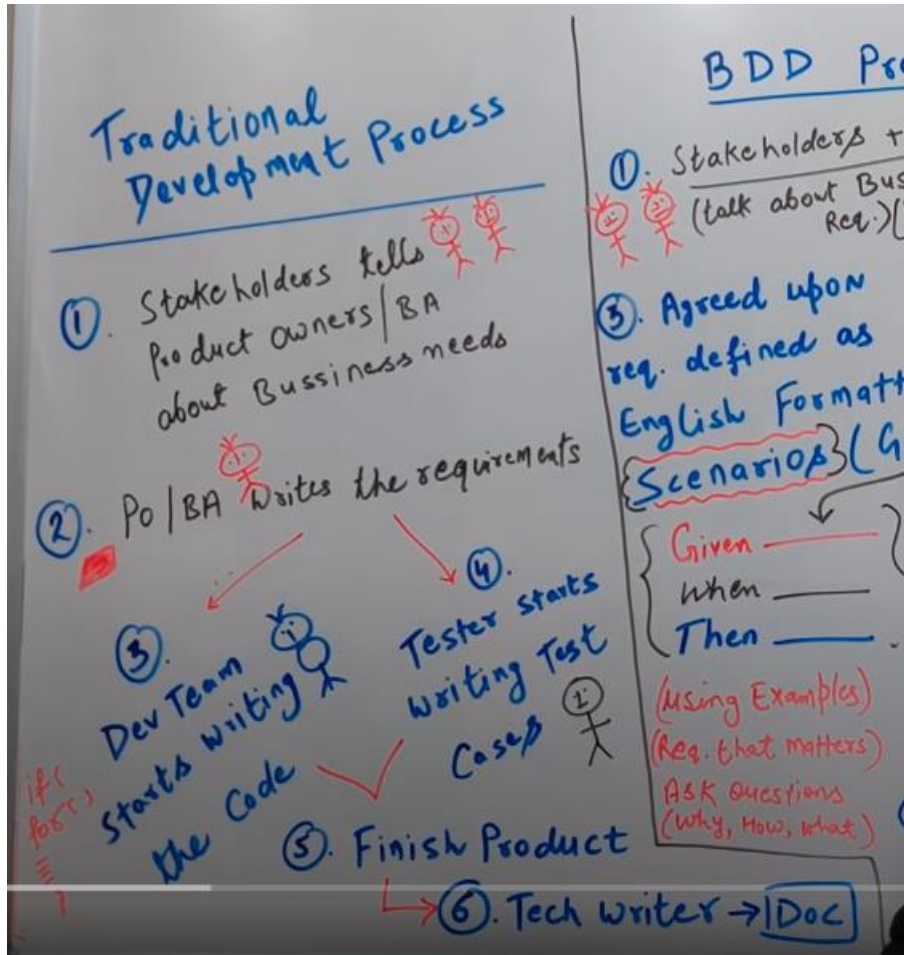 Traditional
Development Process
①. Stakeholders tells
Product owners/BA
about Bussiness needs
②. PO/BA writes the requirements
③.
Dev Team
starts writing
the Code
if(
for( )
④.
Tester starts
writing Test
Cases
⑤. Finish Product
⑥. Tech writer → Doc
BDD
①. Stakeholders +
(talk about
Req.)(
③. Agreed upon
req. defined as
English
{Scenarios} (
Given
When
Then
(using Examples)
(Req. that matters)
Ask Questions
(Why, How, what)